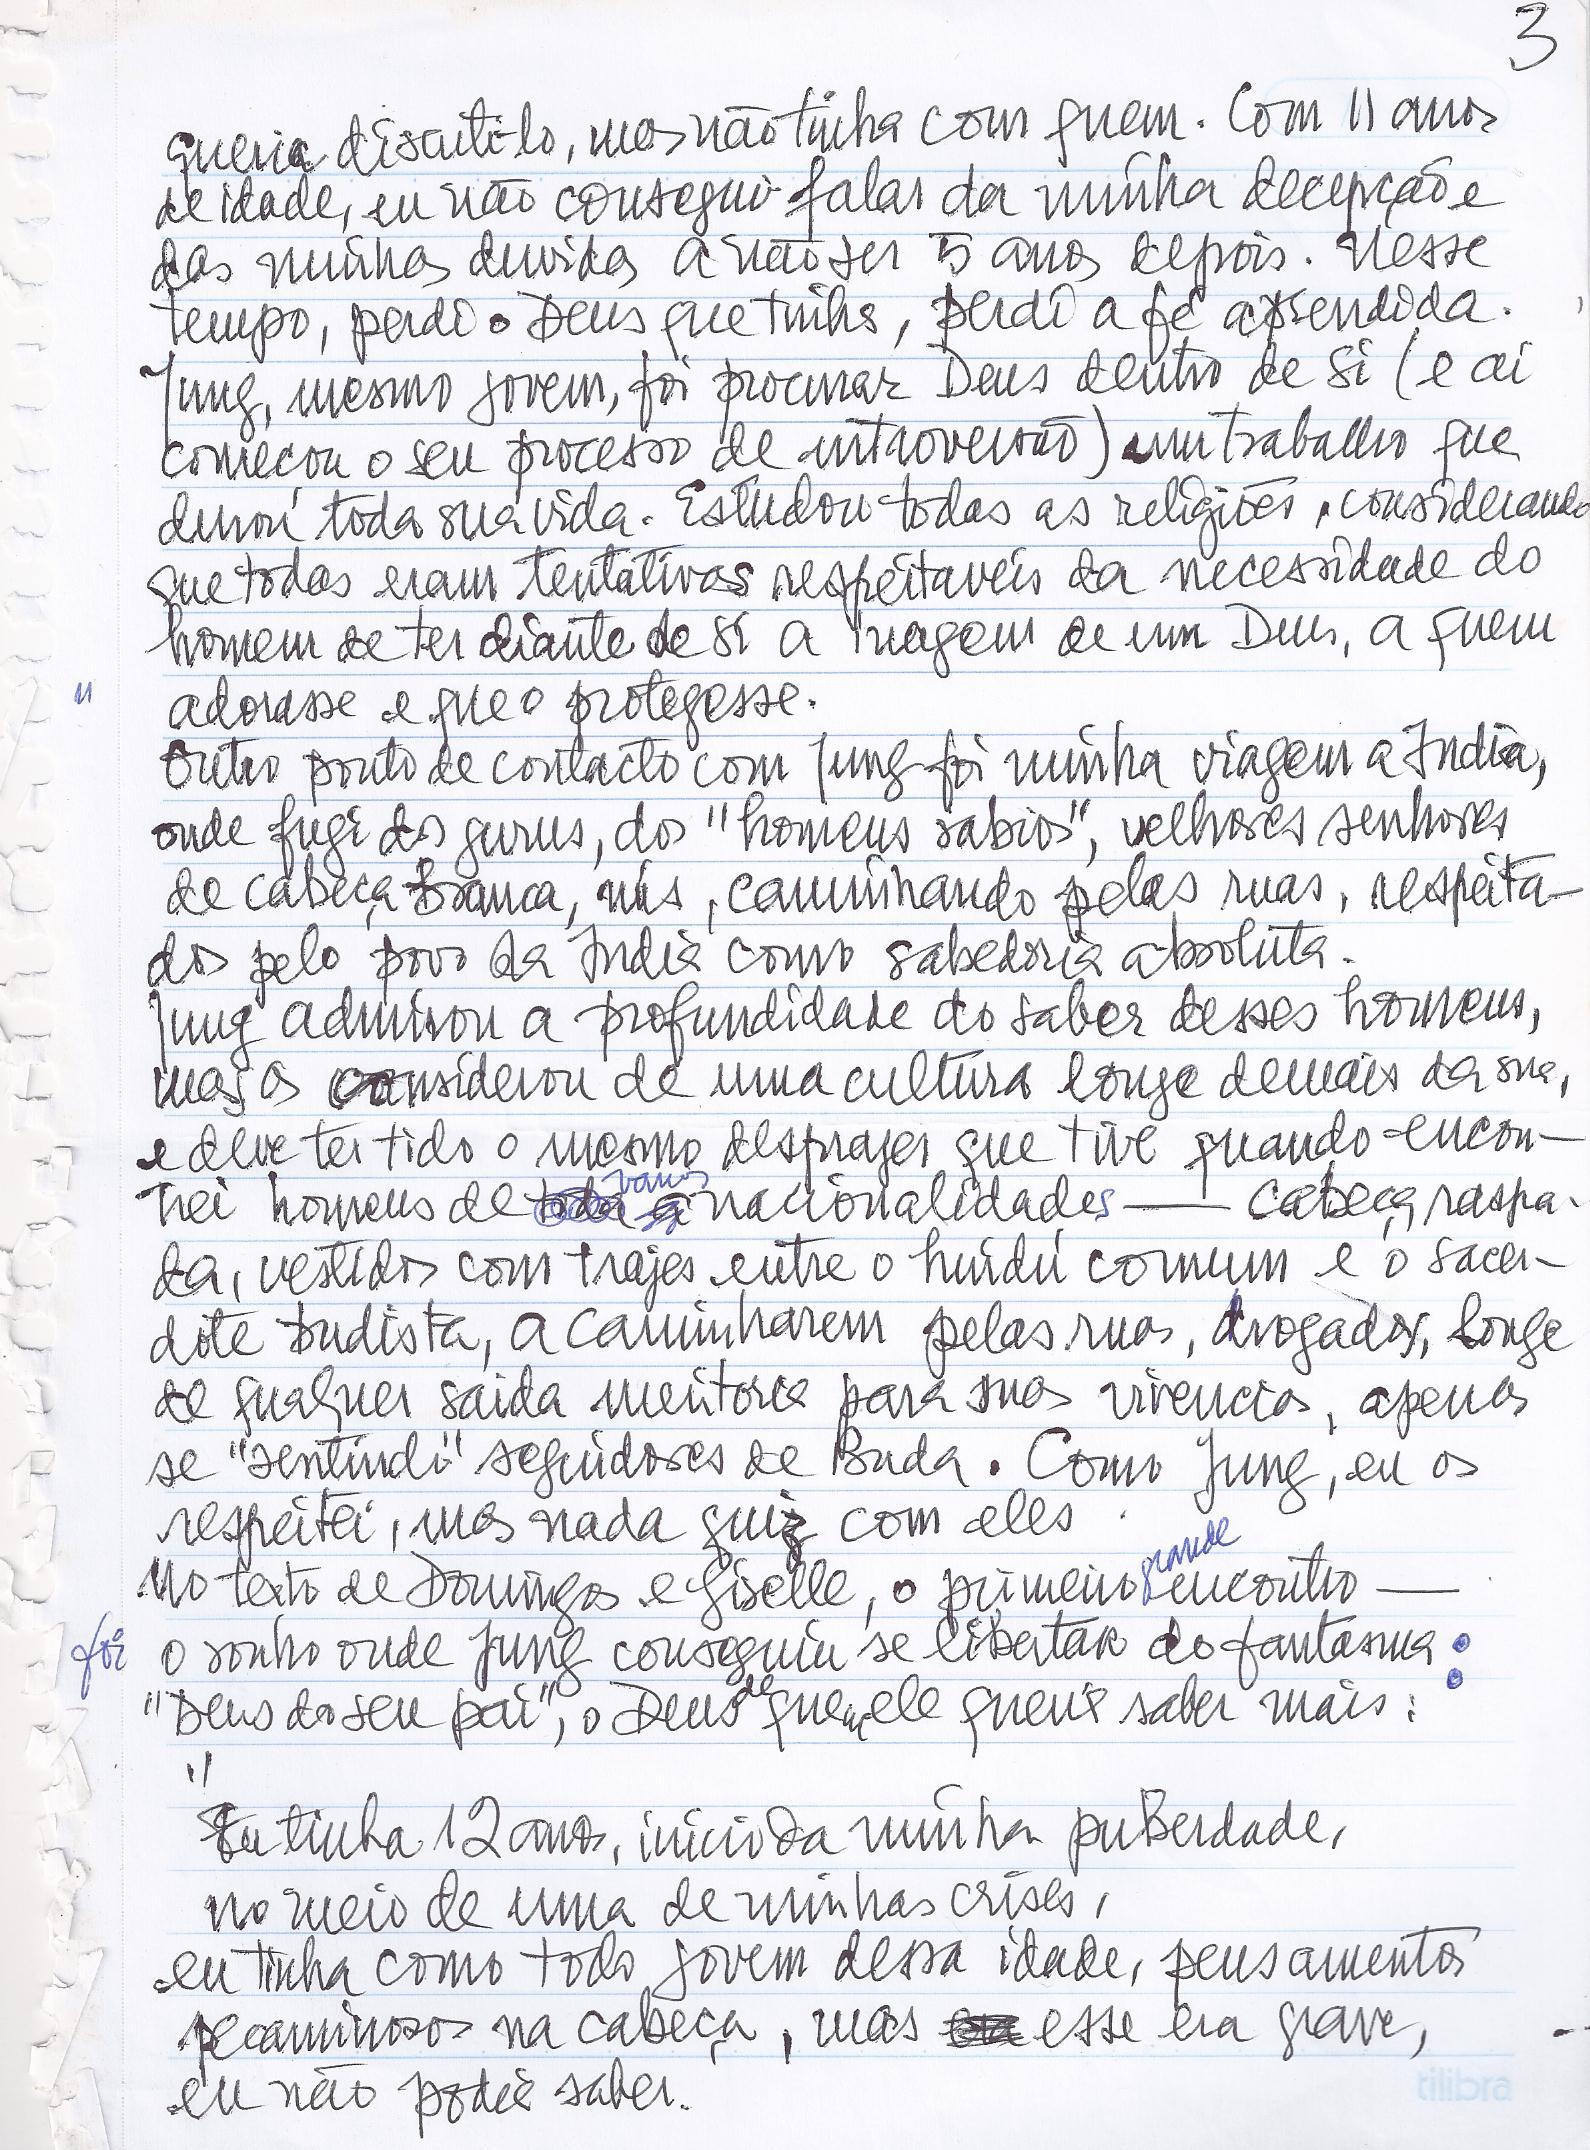 3
queria discuti-lo, mas não tinha com quem. Com 11 anos
de idade, eu não consegui falar da minha decepção e
das minhas duvidas a não ser 5 anos depois. Nesse
tempo, perdi o Deus que tinha, perdi a fé aprendida.
Jung, mesmo jovem, foi procurar Deus dentro de si (e ai
começou o seu processo de introversão) num trabalho que
durou toda sua vida. Estudou todas as religiões, considerando
que todas eram tentativas respeitaveis da necessidade do
homem de ter diante de si a imagem de um Deus, a quem
adorasse e que o protegesse.
Outro ponto de contacto com Jung foi minha viagem a India,
onde fugi dos gurus, dos "homens sabios", velhores senhores
de cabeça branca, nús, caminhando pelas ruas, respeita-
dos pelo povo da India como sabedoria absoluta.
Jung admirou a profundidade do saber desses homens,
mas os considerou de uma cultura longe demais da sua,
e deve ter tido o mesmo desprazer que tive quando encon-
trei homens de varias nacionalidades — cabeça raspa-
da, vestidos com trajes entre o hindú comum e o sacer-
dote budista, a caminharem pelas ruas, drogados, longe
de qualquer saida meritoria para suas vivencias, apenas
se "sentindo" seguidores de Buda. Como Jung, eu os
respeitei, mas nada quiz com eles.
No texto de Domingos e Giselle, o primeiro grande encontro —
foi o sonho onde Jung conseguiu se libertar do fantasma:
"Deus do seu pai", o Deus de quem ele queria saber mais:
"
Eu tinha 12 anos, inicio da minha puberdade,
no meio de uma de minhas crises,
eu tinha como todo jovem dessa idade, pensamentos
pecaminosos na cabeça, mas esse era grave,
eu não podia saber.
tilibra